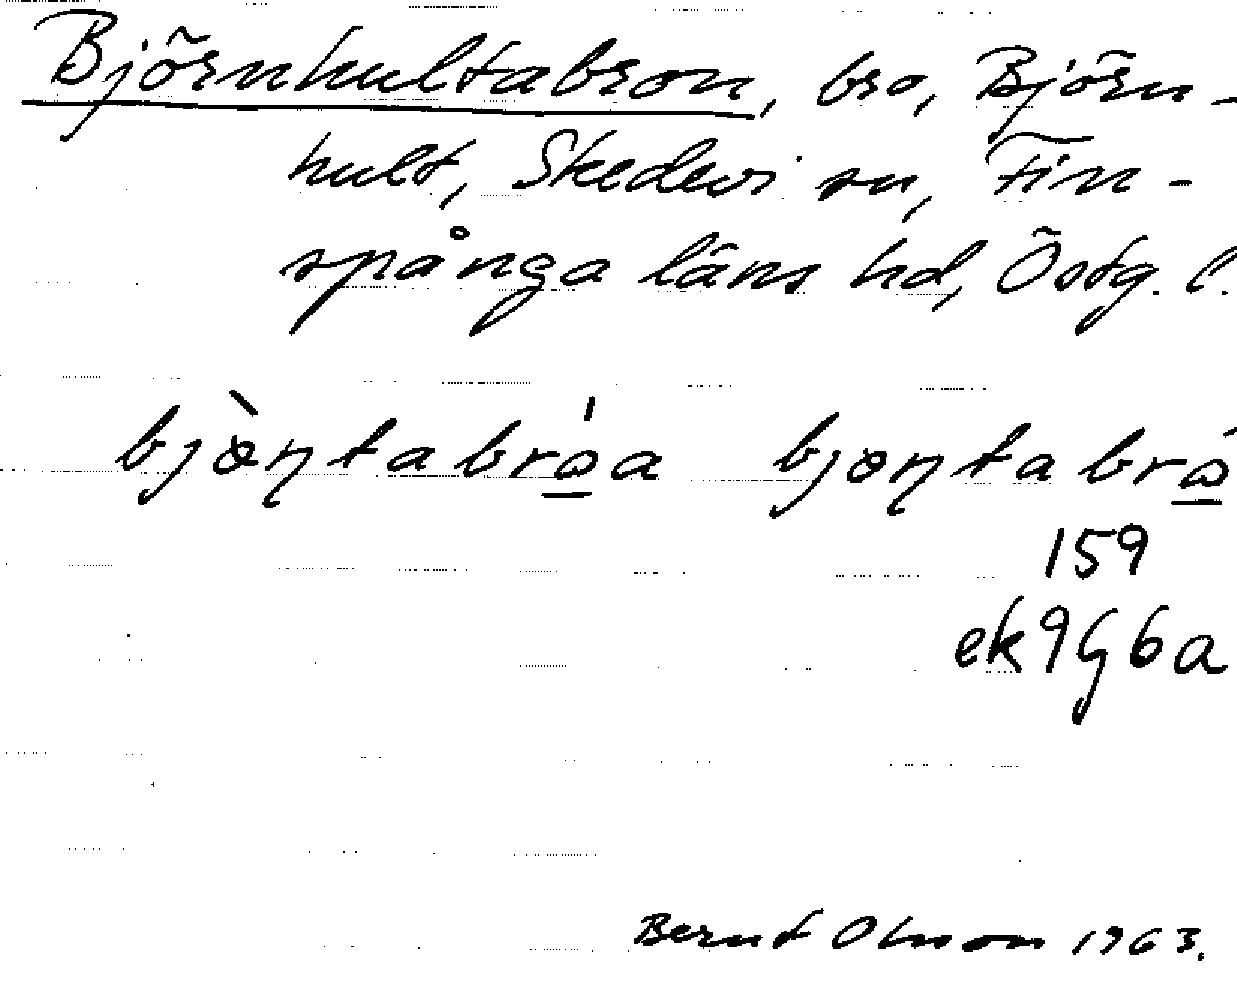 Björnhultabron, bro, Björn-
hult, Skedevi sn, Fin-
spånga läns hd, Östg. l.
bjò̤ɳtabróa bjo̤ɳtabró
159
ek 9G6a
Bernt Olsson 1963.